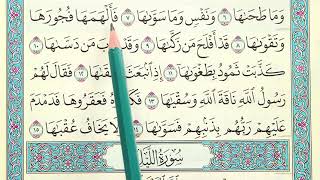 وَمَا طَحَىٰهَا ٦ وَنَفْسٍ وَمَا سَوَّىٰهَا ٧ فَأَلْهَمَهَا فُجُورَهَا
وَتَقْوَىٰهَا ٨ قَدْ أَفْلَحَ مَن زَكَّىٰهَا ٩ وَقَدْ خَابَ مَن دَسَّىٰهَا ١٠
كَذَّبَتْ ثَمُودُ بِطَغْوَىٰهَا ١١ إِذِ ٱنۢبَعَثَ أَشْقَىٰهَا ١٢ فَقَالَ لَهُمْ
رَسُولُ ٱللَّهِ نَاقَةَ ٱللَّهِ وَسُقْيَٰهَا ١٣ فَكَذَّبُوهُ فَعَقَرُوهَا فَدَمْدَمَ
عَلَيْهِمْ رَبُّهُم بِذَنۢبِهِمْ فَسَوَّىٰهَا ١٤ وَلَا يَخَافُ عُقْبَٰهَا ١٥
سُورَةُ ٱللَّيْلِ